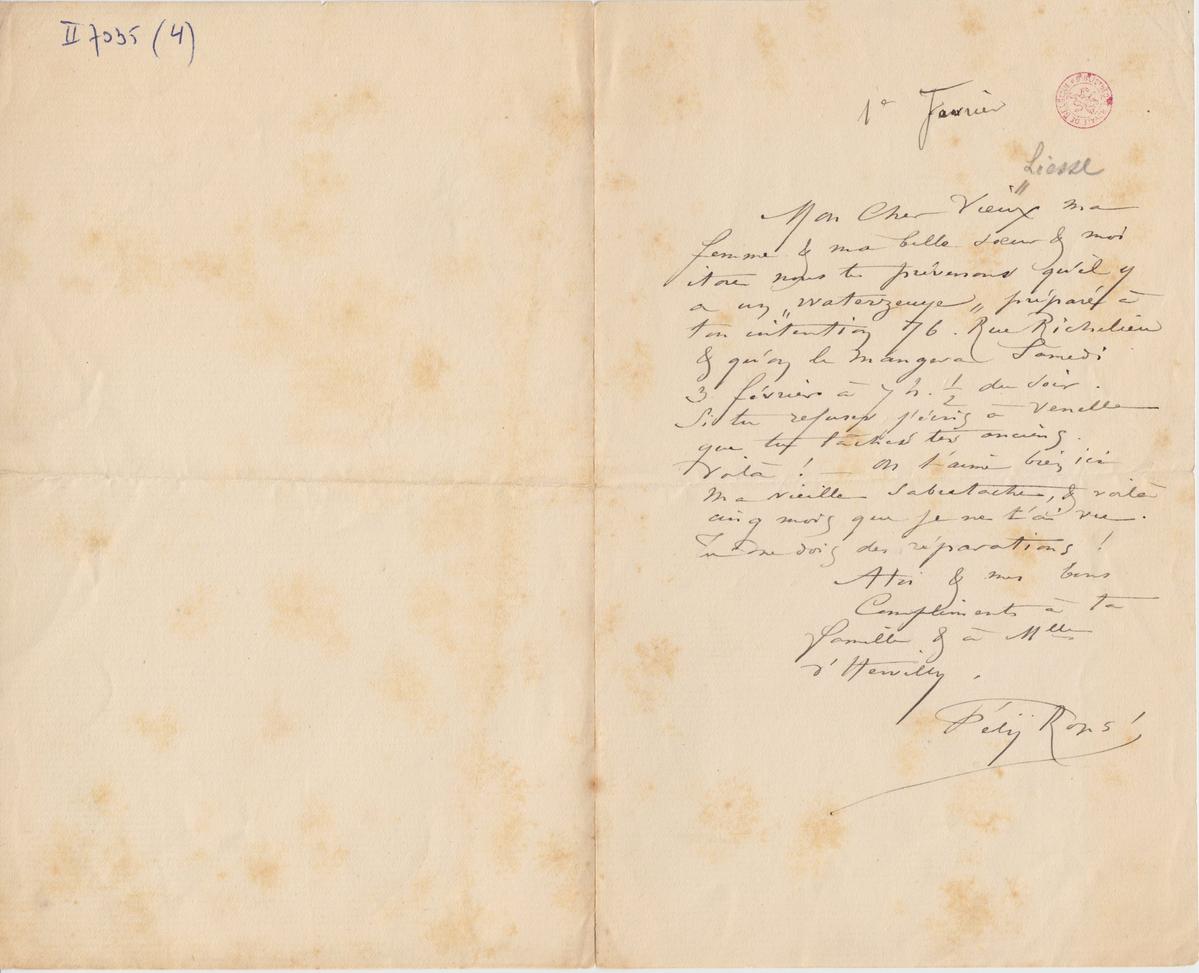 II 7035 (4)
1e Fevrier
Liesse
Mon Cher Vieux ma
femme & ma belle soeur & moi
itou nous te prévenons qu'il y
a un „waterzeuye„ préparé à
ton intention 76. Rue Richelieu
& qu'on le mangera Samedi
3 février à 7 h. ½ du soir.
Si tu refuses j'écris à
que tu tes anciens.
Voilà ! — On t'aime bien ici
ma vieille Sabretache, & voilà
cinq mois que je ne t'ai vu.
Tu me dois des réparations !
A toi & mes bons
Compliments à ta
famille & à Mlle
d'Hervilly.
Félix Rops